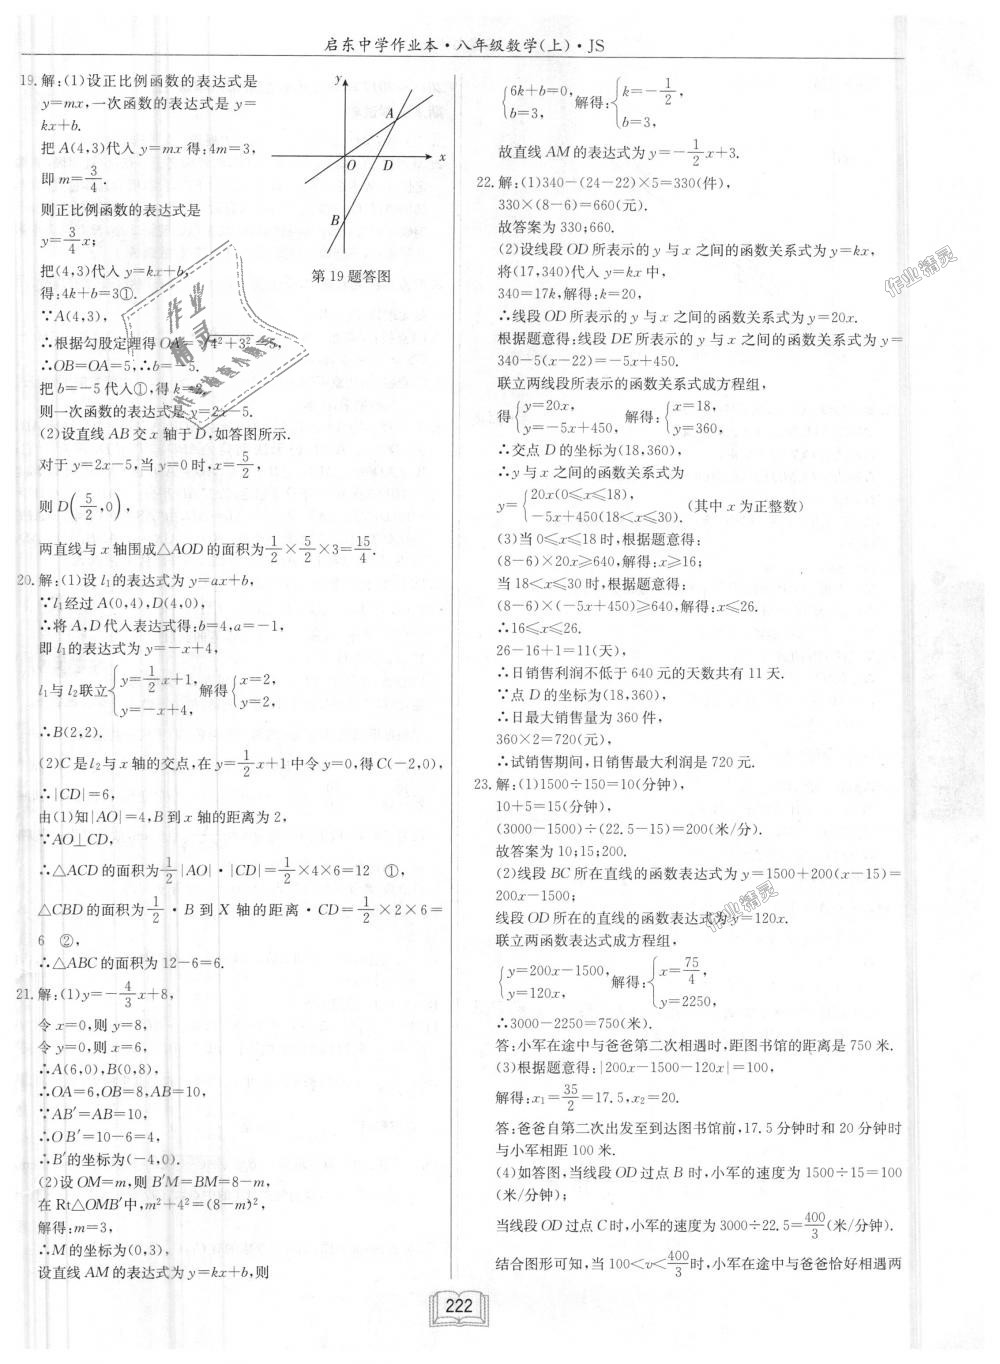 启东中学作业本·八年级数学(上)·JS
19. 解:(1)设正比例函数的表达式是
y=mx,一次函数的表达式是 y=
kx+b.
把 A(4,3)代入 y=mx 得:4m=3,
即 m=3/4.
则正比例函数的表达式是
y=3/4x;
把(4,3)代入 y=kx+b,
得:4k+b=3①.
∵A(4,3),
∴根据勾股定理得 OA=√(4²+3²)=5,
∴OB=OA=5,∴b=-5.
把 b=-5 代入①,得 k=2.
则一次函数的表达式是 y=2x-5.
(2)设直线 AB 交 x 轴于 D,如答图所示.
y
A
O
D
x
B
第 19 题答图
对于 y=2x-5,当 y=0 时,x=5/2,
则 D(5/2,0),
两直线与 x 轴围成△AOD 的面积为1/2×5/2×3=15/4.
20. 解:(1)设 l₁的表达式为 y=ax+b,
∵l₁经过 A(0,4),D(4,0),
∴将 A,D 代入表达式得:b=4,a=-1,
即 l₁的表达式为 y=-x+4,
l₁与 l₂联立{y=1/2x+1, y=-x+4, 解得{x=2, y=2,
∴B(2,2).
(2)C 是 l₂与 x 轴的交点,在 y=1/2x+1 中令 y=0,得 C(-2,0),
∴|CD|=6,
由(1)知|AO|=4,B 到 x 轴的距离为 2,
∵AO⊥CD,
∴△ACD 的面积为1/2|AO|·|CD|=1/2×4×6=12 ①,
△CBD 的面积为1/2·B 到 X 轴的距离·CD=1/2×2×6=
6 ②,
∴△ABC 的面积为 12-6=6.
21. 解:(1)y=-4/3x+8,
令 x=0,则 y=8,
令 y=0,则 x=6,
∴A(6,0),B(0,8),
∴OA=6,OB=8,AB=10,
∵AB′=AB=10,
∴OB′=10-6=4,
∴B′的坐标为(-4,0).
(2)设 OM=m,则 B′M=BM=8-m,
在 Rt△OMB′中,m²+4²=(8-m)²,
解得:m=3,
∴M 的坐标为(0,3),
设直线 AM 的表达式为 y=kx+b,则
{6k+b=0, b=3, 解得:{k=-1/2, b=3,
故直线 AM 的表达式为 y=-1/2x+3.
22. 解:(1)340-(24-22)×5=330(件),
330×(8-6)=660(元).
故答案为 330;660.
(2)设线段 OD 所表示的 y 与 x 之间的函数关系式为 y=kx,
将(17,340)代入 y=kx 中,
340=17k,解得:k=20,
∴线段 OD 所表示的 y 与 x 之间的函数关系式为 y=20x.
根据题意得:线段 DE 所表示的 y 与 x 之间的函数关系式为 y=
340-5(x-22)=-5x+450.
联立两线段所表示的函数关系式成方程组,
得{y=20x, y=-5x+450, 解得:{x=18, y=360,
∴交点 D 的坐标为(18,360),
∴y 与 x 之间的函数关系式为
y={20x(0≤x≤18), -5x+450(18<x≤30). (其中 x 为正整数)
(3)当 0≤x≤18 时,根据题意得:
(8-6)×20x≥640,解得:x≥16;
当 18<x≤30 时,根据题意得:
(8-6)×(-5x+450)≥640,解得:x≤26.
∴16≤x≤26.
26-16+1=11(天),
∴日销售利润不低于 640 元的天数共有 11 天.
∵点 D 的坐标为(18,360),
∴日最大销售量为 360 件,
360×2=720(元),
∴试销售期间,日销售最大利润是 720 元.
23. 解:(1)1500÷150=10(分钟),
10+5=15(分钟),
(3000-1500)÷(22.5-15)=200(米/分).
故答案为 10;15;200.
(2)线段 BC 所在直线的函数表达式为 y=1500+200(x-15)=
200x-1500;
线段 OD 所在的直线的函数表达式为 y=120x.
联立两函数表达式成方程组,
{y=200x-1500, y=120x, 解得:{x=75/4, y=2250,
∴3000-2250=750(米).
答:小军在途中与爸爸第二次相遇时,距图书馆的距离是 750 米.
(3)根据题意得:|200x-1500-120x|=100,
解得:x₁=35/2=17.5,x₂=20.
答:爸爸自第二次出发至到达图书馆前,17.5 分钟时和 20 分钟时
与小军相距 100 米.
(4)如答图,当线段 OD 过点 B 时,小军的速度为 1500÷15=100
(米/分钟);
当线段 OD 过点 C 时,小军的速度为 3000÷22.5=400/3(米/分钟).
结合图形可知,当 100<v<400/3时,小军在途中与爸爸恰好相遇两
222
作业精灵
作业精灵
作业
精灵